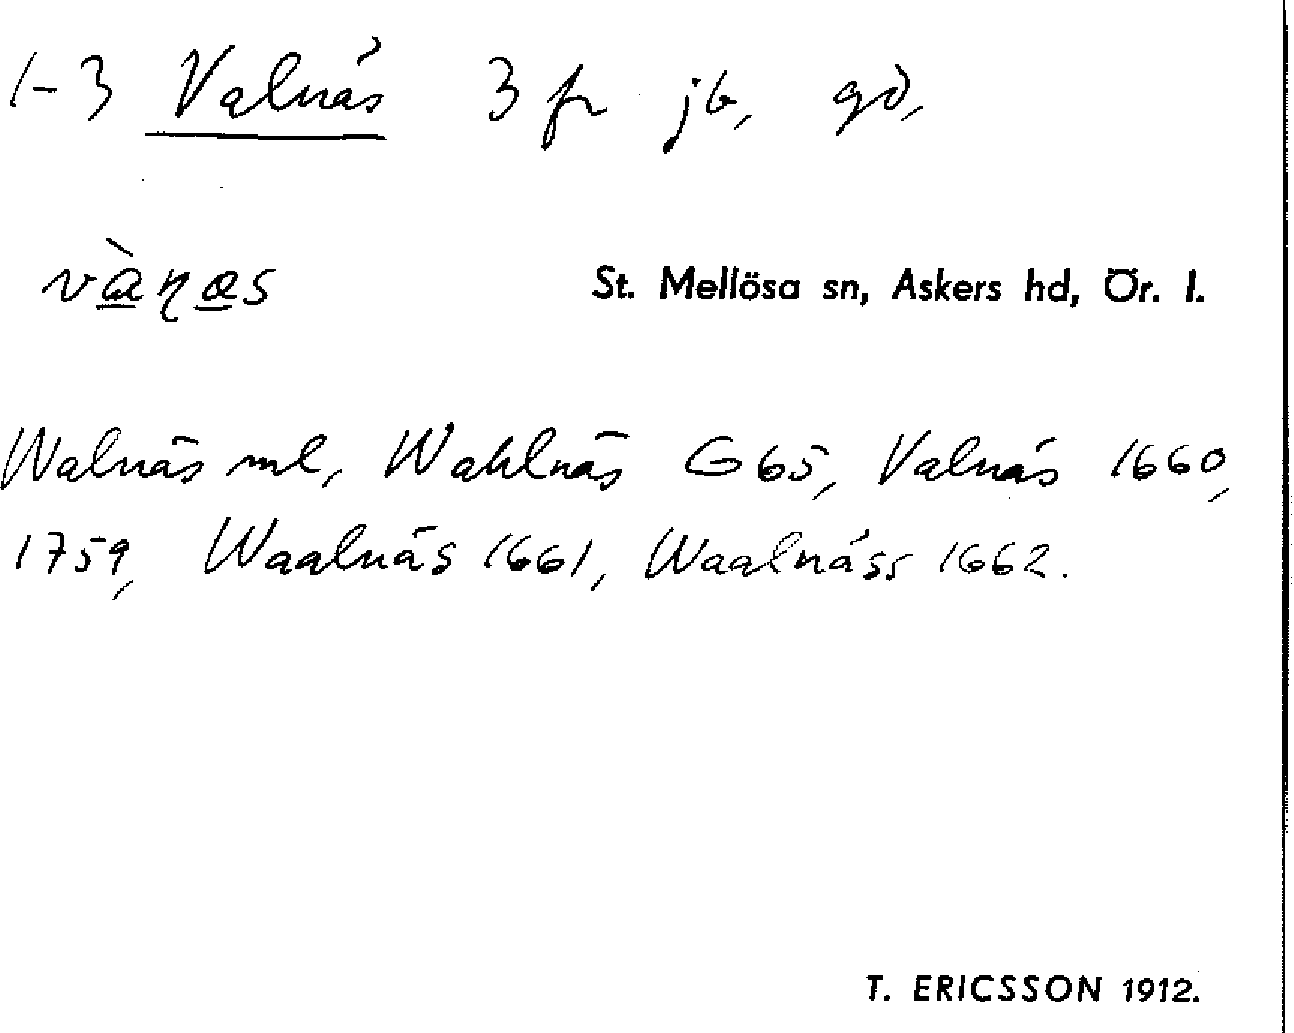 1-3 Valnäs 3 fr jb, gd,
vàɳas St. Mellösa sn, Askers hd, Ör. l.
Walnäs ml, Wahlnäs G65, Valnäs 1660,
1759, Waalnäs 1661, Waalnäss 1662.
T. ERICSSON 1912.